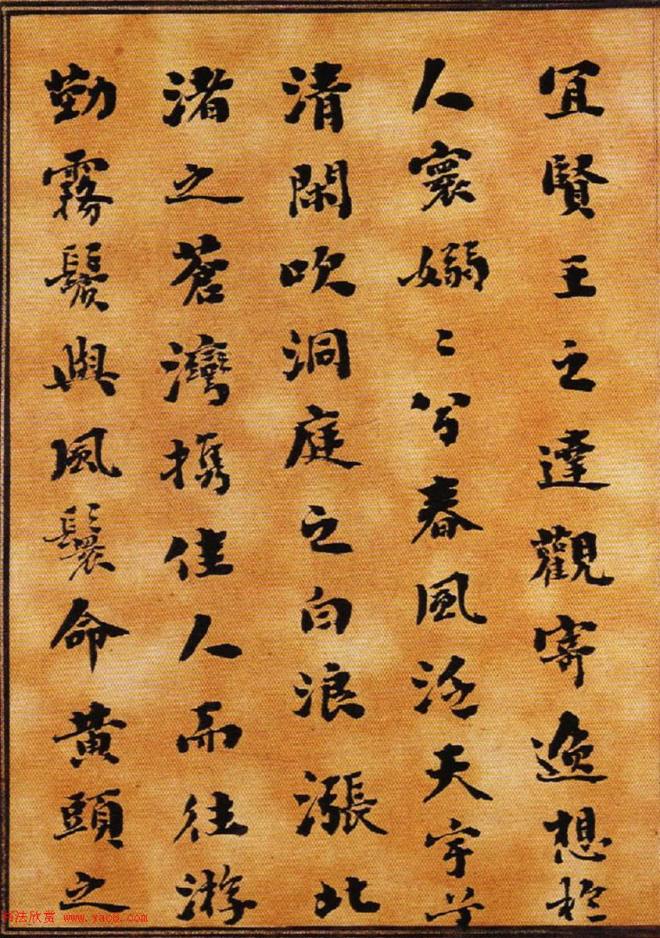 宜賢王之達觀寄逸想於
人寰嫋〻兮春風泛天宇兮
清閑吹洞庭之白浪漲北
渚之蒼灣携佳人而往游
勤霧鬢與風鬟命黃頭之
书法欣赏 www.yac8.com